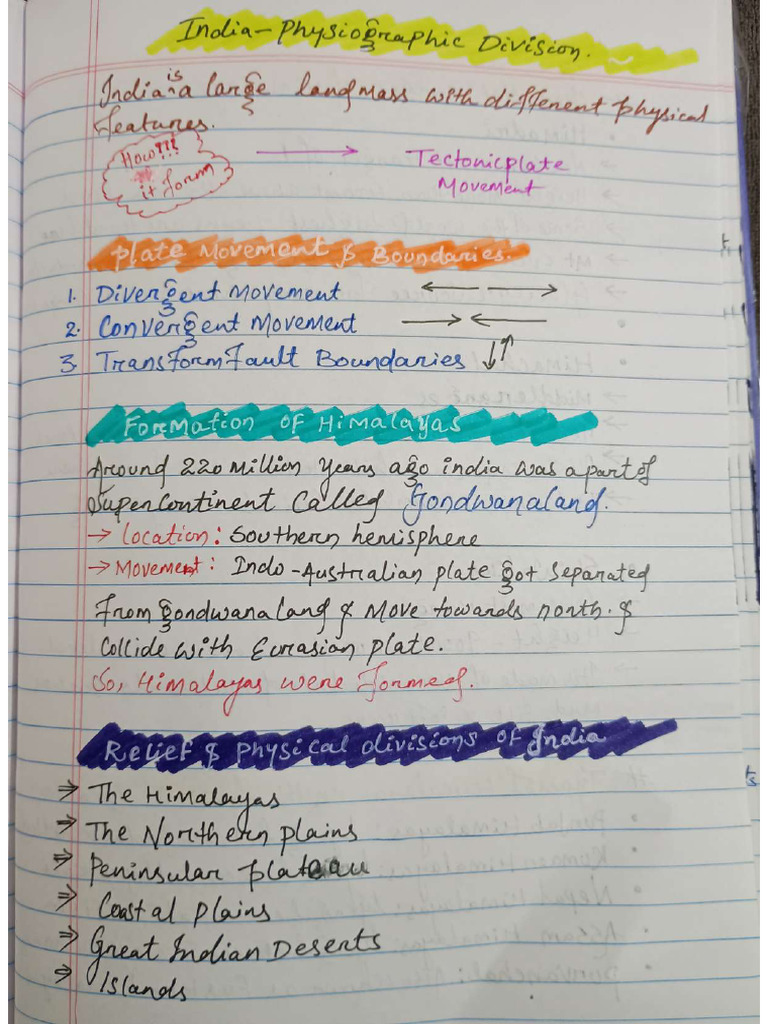 India - Physiographic Division.
India is a large landmass with different physical
features.
How???
it form
→ Tectonic plate
Movement
Plate Movement & Boundaries.
1. Divergent Movement ← →
2. Convergent Movement → ←
3. Transform Fault Boundaries ↓↑
Formation of Himalayas
Around 220 Million years ago india was a part of
Supercontinent Called Gondwanaland.
→ Location: Southern hemisphere
→ Movement: Indo-Australian plate got separated
From gondwanaland & Move towards north. &
Collide with Eurasian plate.
So, Himalayas were formed.
Relief & physical divisions of India
⇒ The Himalayas
⇒ The Northern plains
⇒ Peninsular plateau
⇒ Coastal plains
⇒ Great Indian Deserts
⇒ Islands